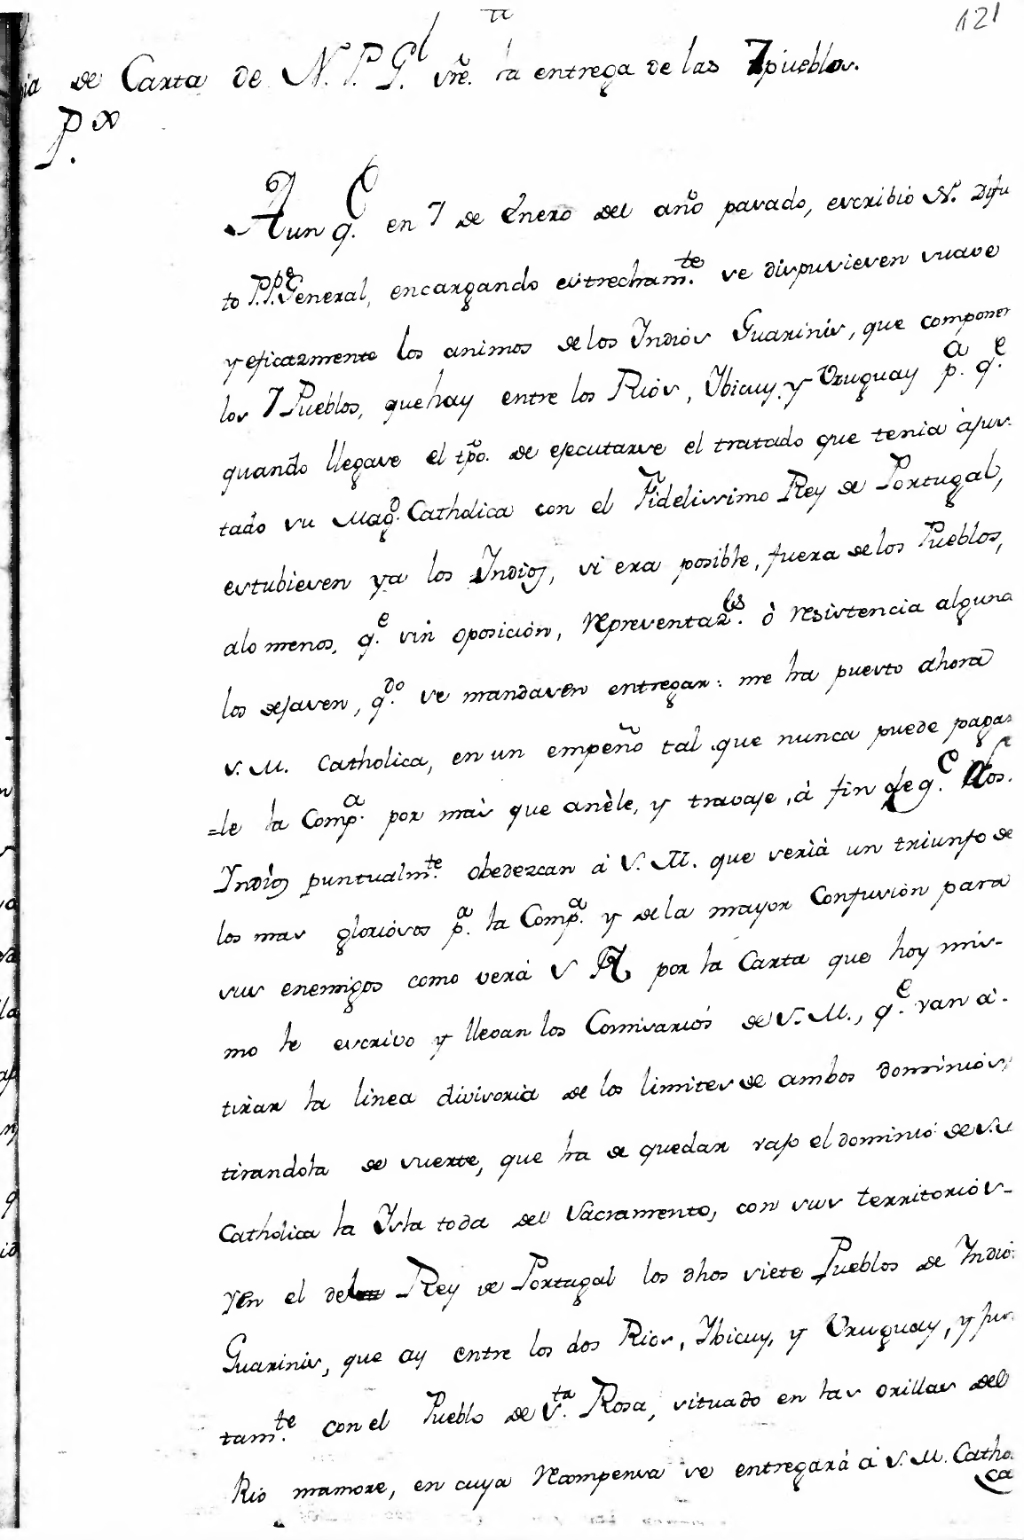 121
de Carta de N. P. G.l sre. la entrega de las 7 pueblos.
P. X
Aun q.e en 7 de Enero del año pasado, escribio N. Difu
to P.P.e General, encargando estrecham.te se dispusiesen suave
y eficazmente los animos de los Indios Guarinis, que componen
los 7 Pueblos, que hay entre los Rios, Ibicuy, y Uruguay p.a q.e
quando llegase el tpõ. de ejecutarse el tratado que tenia àjus-
tado su Mag.d Catholica con el Fidelissimo Rey de Portugal,
estubiesen ya los Indios, si era posible, fuera de los Pueblos,
alo menos, q.e sin oposiciòn, representaz.les ò resistencia alguna
los dejasen, q.do se mandasen entregar: me ha puesto ahora
S. M. Catholica, en un empeño tal que nunca puede pagar
=le la Comp.a por mas que anèle, y travaje, à fin de q.e los
Indios puntualm.te obedezcan à S. M. que serià un triunfo de
los mas gloriosos p.a la Comp.a y de la mayor Confusion para
sus enemigos como verá V R por la Carta que hoy mis-
mo le escrivo y llevan los Comisarios de S. M., q.e van à
tirar la linea divisoria de los limites de ambos dominios,
tirandola de suerte, que ha de quedar vajo el dominio de S. M
Catholica la Isla toda del Sacramento, con sus territorios-
y en el del Rey de Portugal los dhos siete Pueblos de Indios
Guarinis, que ay entre los dos Rios, Ibicuy, y Uruguay, y jun
tam.te con el Pueblo de S.ta Rosa, situado en las orillas del
Rio mamore, en cuya recompensa se entregará à S. M. Catho
ca